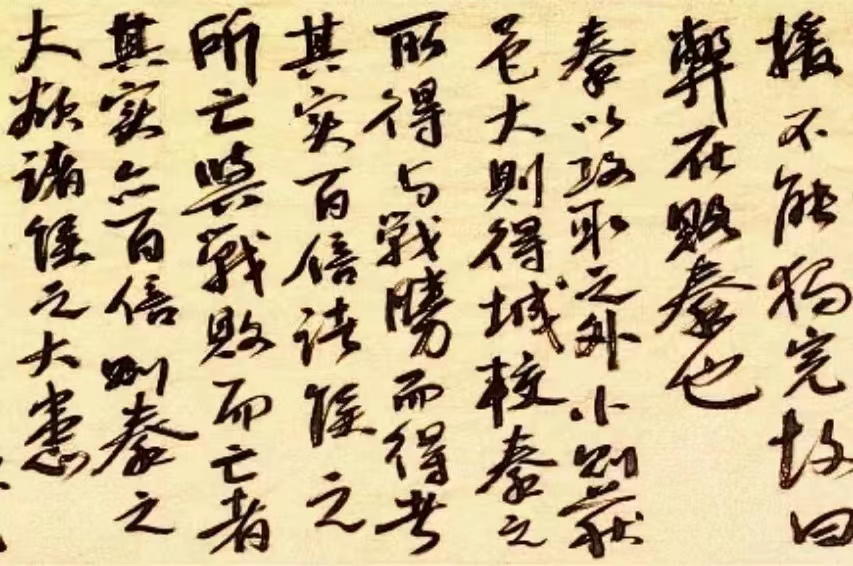 援不能独完故曰
弊在賂秦也
秦以攻取之外小则获
邑大則得城较秦之
所得与戰勝而得者
其实百倍诸侯之
所亡與戰敗而亡者
其实亦百倍则秦之
大欲诸侯之大患